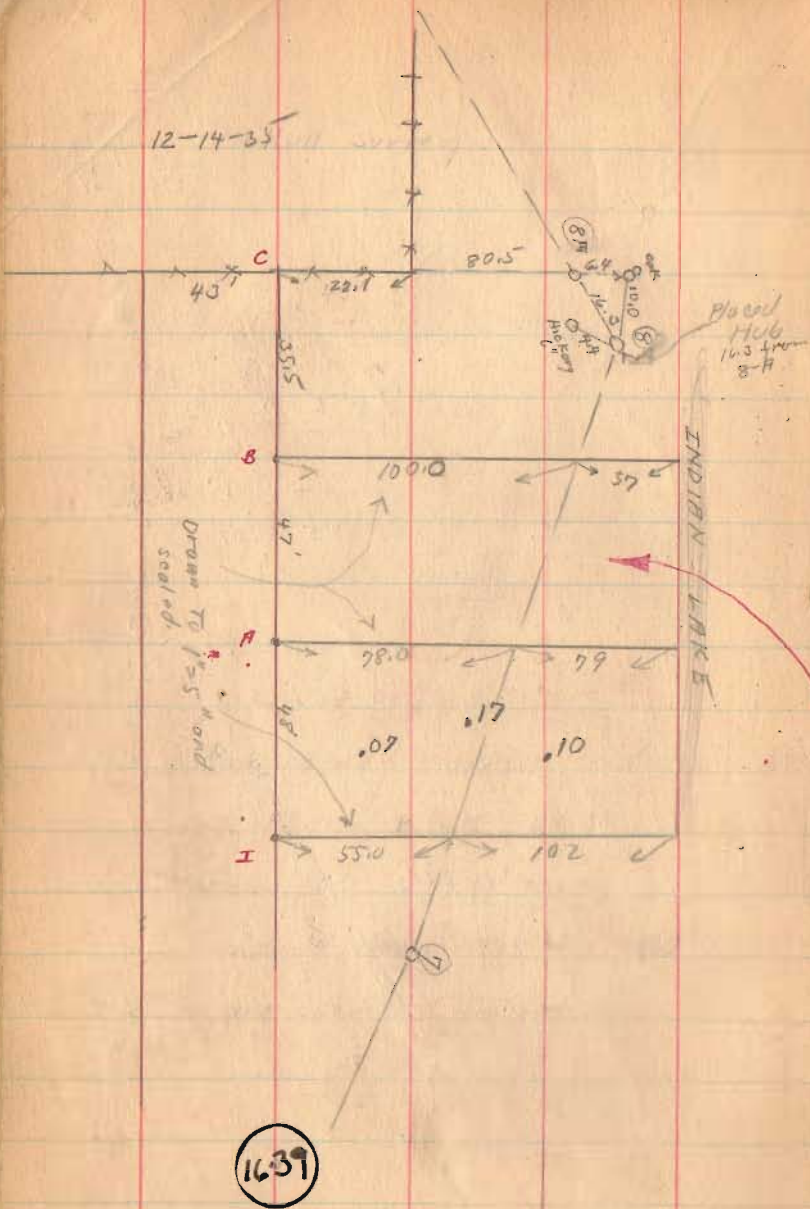 12-14-35
C
43
22.1
80.5
8A
6.4
oak
10.0
16.3
8
Hickory
6"
4.4
Placed
HUB
16.3 from
8-A
35.5
B
100.0
57
INDIAN LAKE
47'
Drawn To 1"=5" and
scaled.
A
78.0
79
48'
.07
.17
.10
I
55.0
102
7
1639